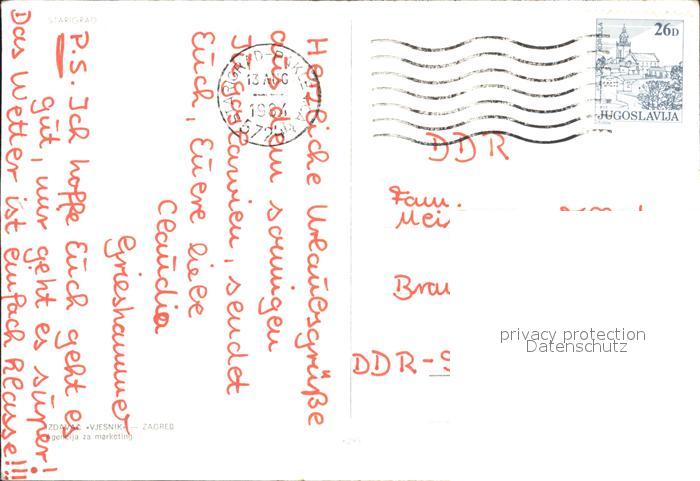 STARIGRAD
Herzliche Urlaubsgrüße
aus dem sonnigen
Jugoslawien, sendet
Euch, Euere liebe
Claudia
Grieshammer
P.S. Ich hoffe Euch geht es
gut, mir geht es super!
Das Wetter ist einfach klasse!!!
IZDAVAČ «VJESNIK» — ZAGREB
Agencija za marketing
13
1984
26D
JUGOSLAVIJA
DDR
Fam.
DDR-S
privacy protection
Datenschutz